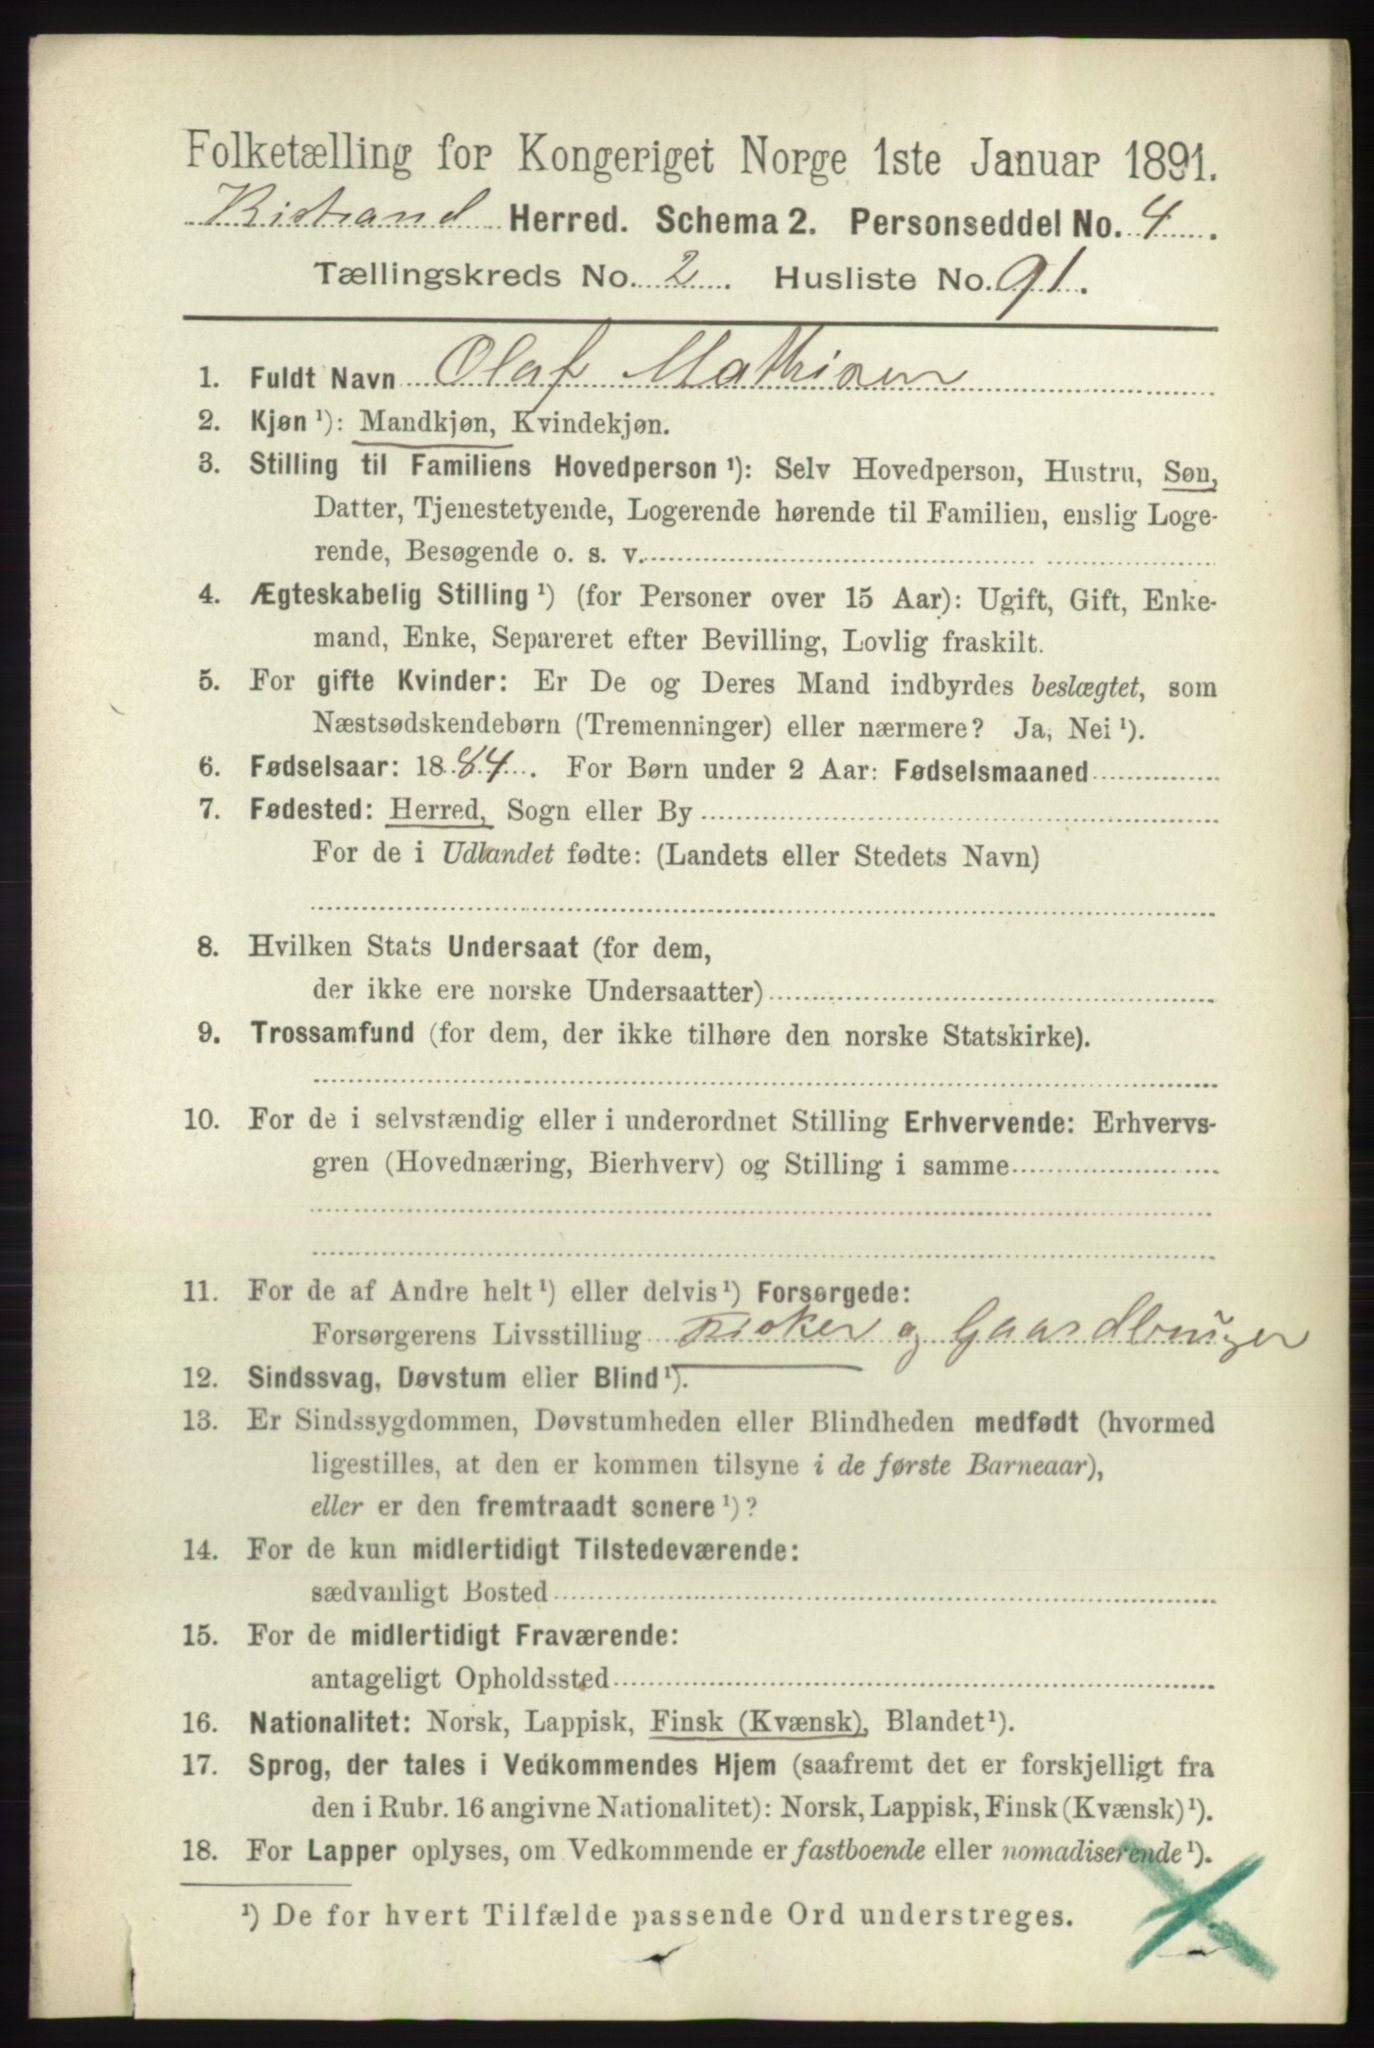 Folketælling for Kongeriget Norge 1ste Januar 1891.
Kistrand Herred. Schema 2. Personseddel No. 4.
Tællingskreds No. 2. Husliste No. 91.
1. Fuldt Navn Olaf Mathisen
2. Kjøn ¹): Mandkjøn, Kvindekjøn.
3. Stilling til Familiens Hovedperson ¹): Selv Hovedperson, Hustru, Søn,
Datter, Tjenestetyende, Logerende hørende til Familien, enslig Loge-
rende, Besøgende o. s. v.
4. Ægteskabelig Stilling ¹) (for Personer over 15 Aar): Ugift, Gift, Enke-
mand, Enke, Separeret efter Bevilling, Lovlig fraskilt.
5. For gifte Kvinder: Er De og Deres Mand indbyrdes beslægtet, som
Næstsødskendebørn (Tremenninger) eller nærmere? Ja, Nei ¹).
6. Fødselsaar: 1884. For Børn under 2 Aar: Fødselsmaaned
7. Fødested: Herred, Sogn eller By
For de i Udlandet fødte: (Landets eller Stedets Navn)
8. Hvilken Stats Undersaat (for dem,
der ikke ere norske Undersaatter)
9. Trossamfund (for dem, der ikke tilhøre den norske Statskirke).
10. For de i selvstændig eller i underordnet Stilling Erhvervende: Erhvervs-
gren (Hovednæring, Bierhverv) og Stilling i samme
11. For de af Andre helt ¹) eller delvis ¹) Forsørgede:
Forsørgerens Livsstilling Fisker og Gaardbruger
12. Sindssvag, Døvstum eller Blind ¹).
13. Er Sindssygdommen, Døvstumheden eller Blindheden medfødt (hvormed
ligestilles, at den er kommen tilsyne i de første Barneaar),
eller er den fremtraadt senere ¹)?
14. For de kun midlertidigt Tilstedeværende:
sædvanligt Bosted
15. For de midlertidigt Fraværende:
antageligt Opholdssted
16. Nationalitet: Norsk, Lappisk, Finsk (Kvænsk), Blandet ¹).
17. Sprog, der tales i Vedkommendes Hjem (saafremt det er forskjelligt fra
den i Rubr. 16 angivne Nationalitet): Norsk, Lappisk, Finsk (Kvænsk) ¹).
18. For Lapper oplyses, om Vedkommende er fastboende eller nomadiserende ¹).
¹) De for hvert Tilfælde passende Ord understreges.